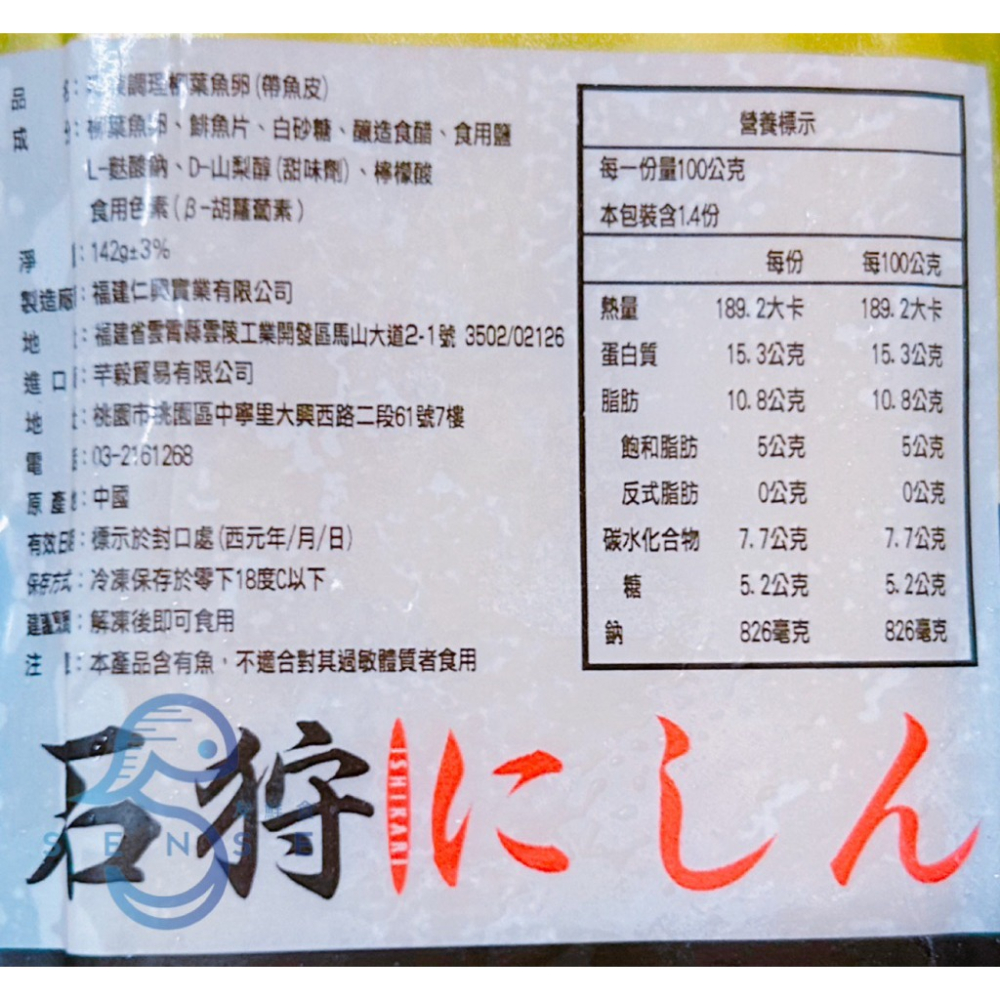 品 : 調理柳葉魚卵(帶魚皮)
成 : 柳葉魚卵、鯡魚片、白砂糖、釀造食醋、食用鹽
L-麩酸鈉、D-山梨醇(甜味劑)、檸檬酸
食用色素(β-胡蘿蔔素)
淨 : 142g±3%
製造廠商: 福建仁興實業有限公司
地 : 福建省雲霄縣雲陵工業開發區馬山大道2-1號 3502/02126
進口 : 芊毅貿易有限公司
地 址: 桃園市桃園區中寧里大興西路二段61號7樓
電 話: 03-2161268
原產地: 中國
有效日期: 標示於封口處(西元年/月/日)
保存方式: 冷凍保存於零下18度C以下
建議烹調: 解凍後即可食用
注 意: 本產品含有魚,不適合對其過敏體質者食用
營養標示
每一份量100公克
本包裝含1.4份
每份 每100公克
熱量 189.2大卡 189.2大卡
蛋白質 15.3公克 15.3公克
脂肪 10.8公克 10.8公克
飽和脂肪 5公克 5公克
反式脂肪 0公克 0公克
碳水化合物 7.7公克 7.7公克
糖 5.2公克 5.2公克
鈉 826毫克 826毫克
石狩 ISHIKARI にしん
SENSE